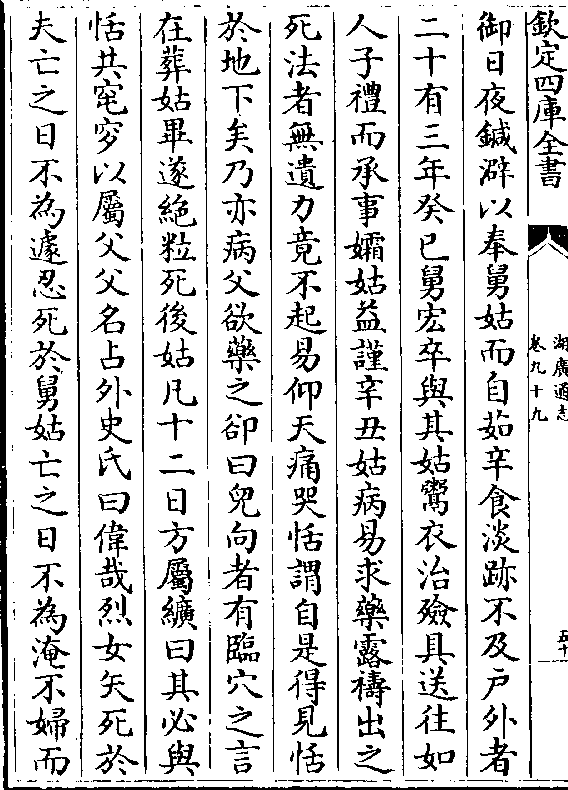 欽定四庫全書
湖廣通志
卷九十九
五十
御日夜鍼澼以奉舅姑而自茹辛食淡跡不及户外者
二十有三年癸巳舅宏卒與其姑鬻衣治殮具送往如
人子禮而承事孀姑益謹辛丑姑病易求藥露禱出之
死法者無遺力竟不起易仰天痛哭恬謂自是得見恬
於地下矣乃亦病父欲藥之卻曰兒向者有臨穴之言
在葬姑畢遂絶粒死後姑凡十二日方屬纊曰其必與
恬共窀穸以屬父父名占外史氏曰偉哉烈女矢死於
夫亡之日不為遽忍死於舅姑亡之日不為淹不婦而